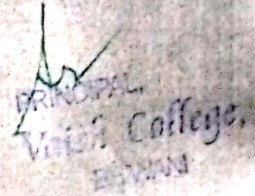 PRINCIPAL,
Vaish College,
BHIWANI